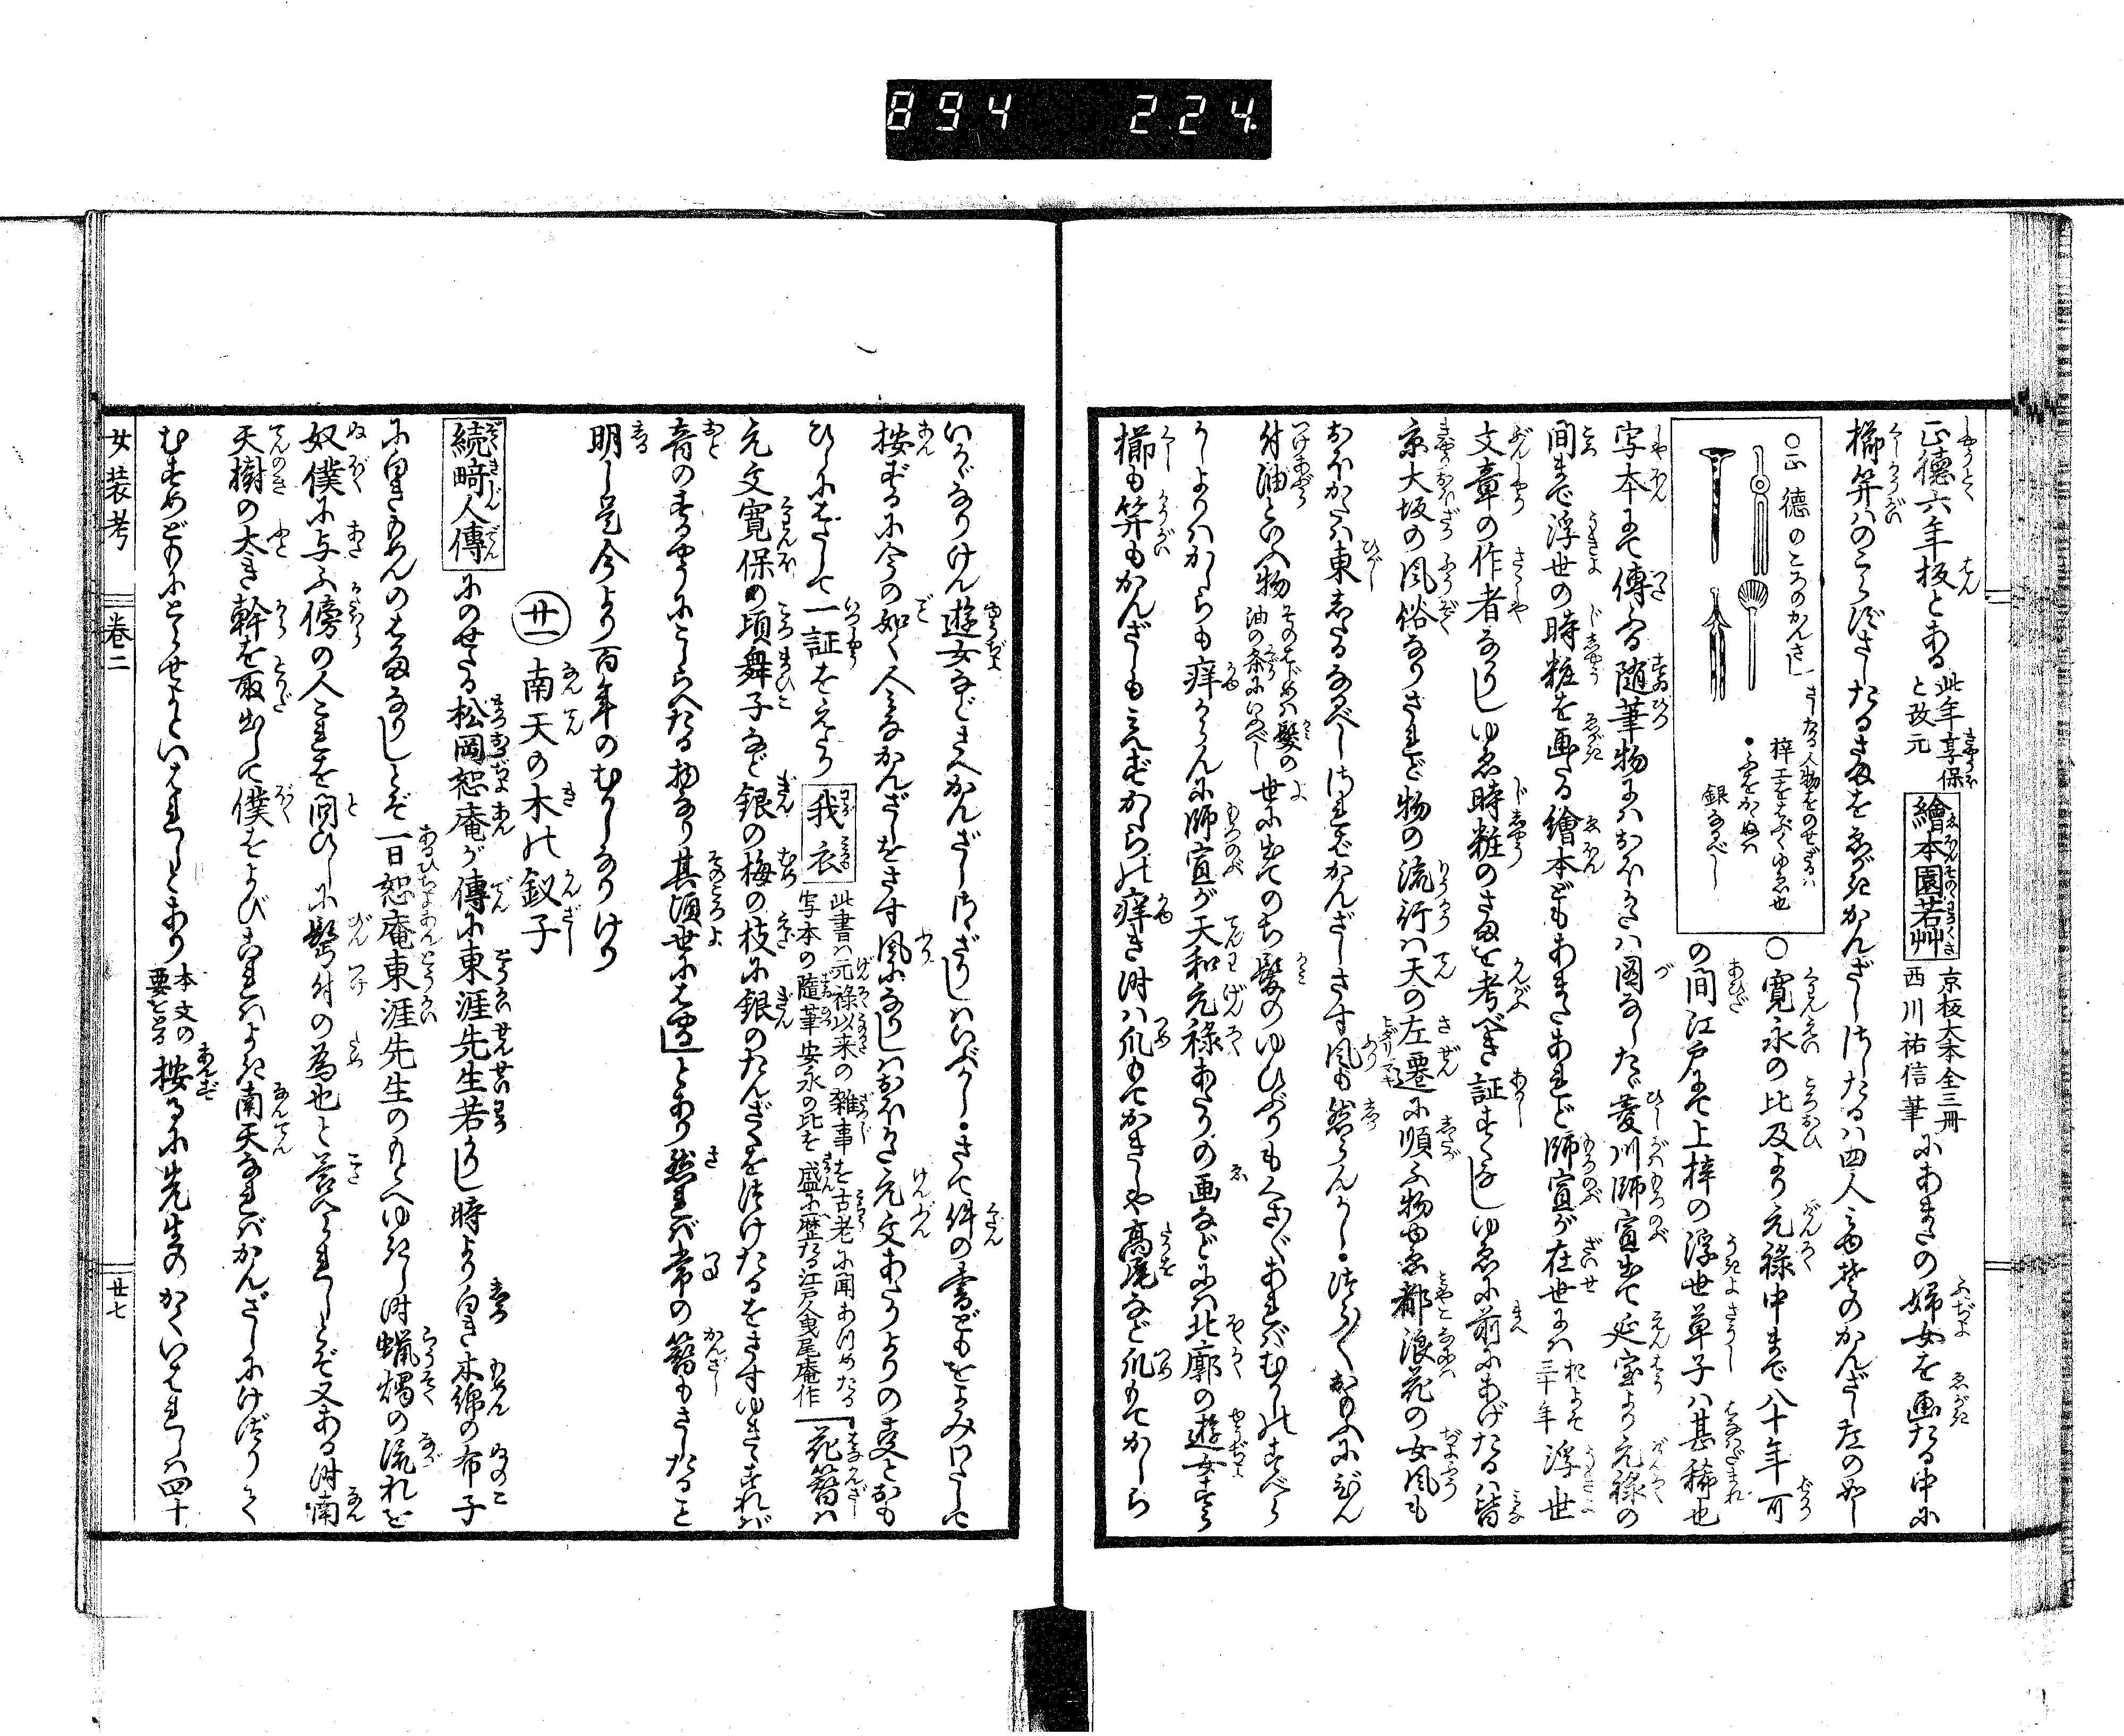 894 224.
正徳六年板とある此年享保と改元繪本園若艸京板大本全三冊西川祐信筆にあまたの婦女を画たる中に
櫛笄はのこらずさしたるさまをゑがきかんざしさしたるは四人みゆ其のかんざし左の如し
○正徳のころのかんざし
さしたる人物をのせざるは
梓工をはぶくゆゑ也
•ふをかゝぬは
銀なるべし
○寛永の比及より元禄中まで八十年可
の間江戸にて上梓の浮世草子は甚稀也
写本にて傳ふる随筆物にはおほかたは図なしたゞ菱川師宣出て延宝より元禄の
間まで浮世の時粧を画たる繪本どもあまたあれど師宣が在世には三十年浮世
文章の作者なかりしゆゑ時粧のさまを考べき証すくなしゆゑに前にあげたるは皆
京大坂の風俗なりされど物の流行は天の左遷に順ふ物ゆゑ都浪花の女風も
おほかたは東したるなるべしさればかんざしさす風も然らんかし•つら〳〵おもふにびん
付油といふ物そのはじめは髪の油の条にいふべし世に出てのち髪のゆひぶりもくさ〴〵あればむかしのすべら
かしよりはかしらも痒からんに師宣が天和元禄あたりの画などには北廓の遊女すら
櫛も笄もかんざしもみえずかしらの痒き時は爪もてかきしや高尾など爪もてかしら
いかゞなりけん遊女などさへかんざしさゝざりしはいぶかし•さて件の書どもをよみわたして
按ずるに今の如く人みなかんざしをさす風になりしはおほかた元文あたりよりの事とおも
ひしにはたして一証をえたり我衣此書は元禄以来の雑事を古老に聞あつめたる写本の随筆安永の比を盛に歴たる江戸人曳尾庵作「花簪は
元文寛保の頃舞子など銀の梅の枝に銀のたんざくを付けたるをさすゆきゝすれば
音のするやうにこしらへたる物なり其頃世にはやる」とあり然れば常の簪もさしたること
明し是今より百年のむかしなりけり
廿一 南天の木の釵子
続畸人傳にのせたる松岡恕庵が傳に東涯先生若かりし時より白き木綿の布子
に白きもめんのはおりなりしとぞ一日恕庵東涯先生のもとへゆきし時蝋燭の流れを
奴僕に与ふ傍の人これを問ひしに髩付の為也と答へられしとぞ又ある時南
天樹の大き幹を取出して僕をよびこれはよき南天なればかんざしにけづりて
むすめどもにとらせよといはれしとあり本文の要をとる按るに先生のかくいはれしは四十
女装考 巻二 廿七